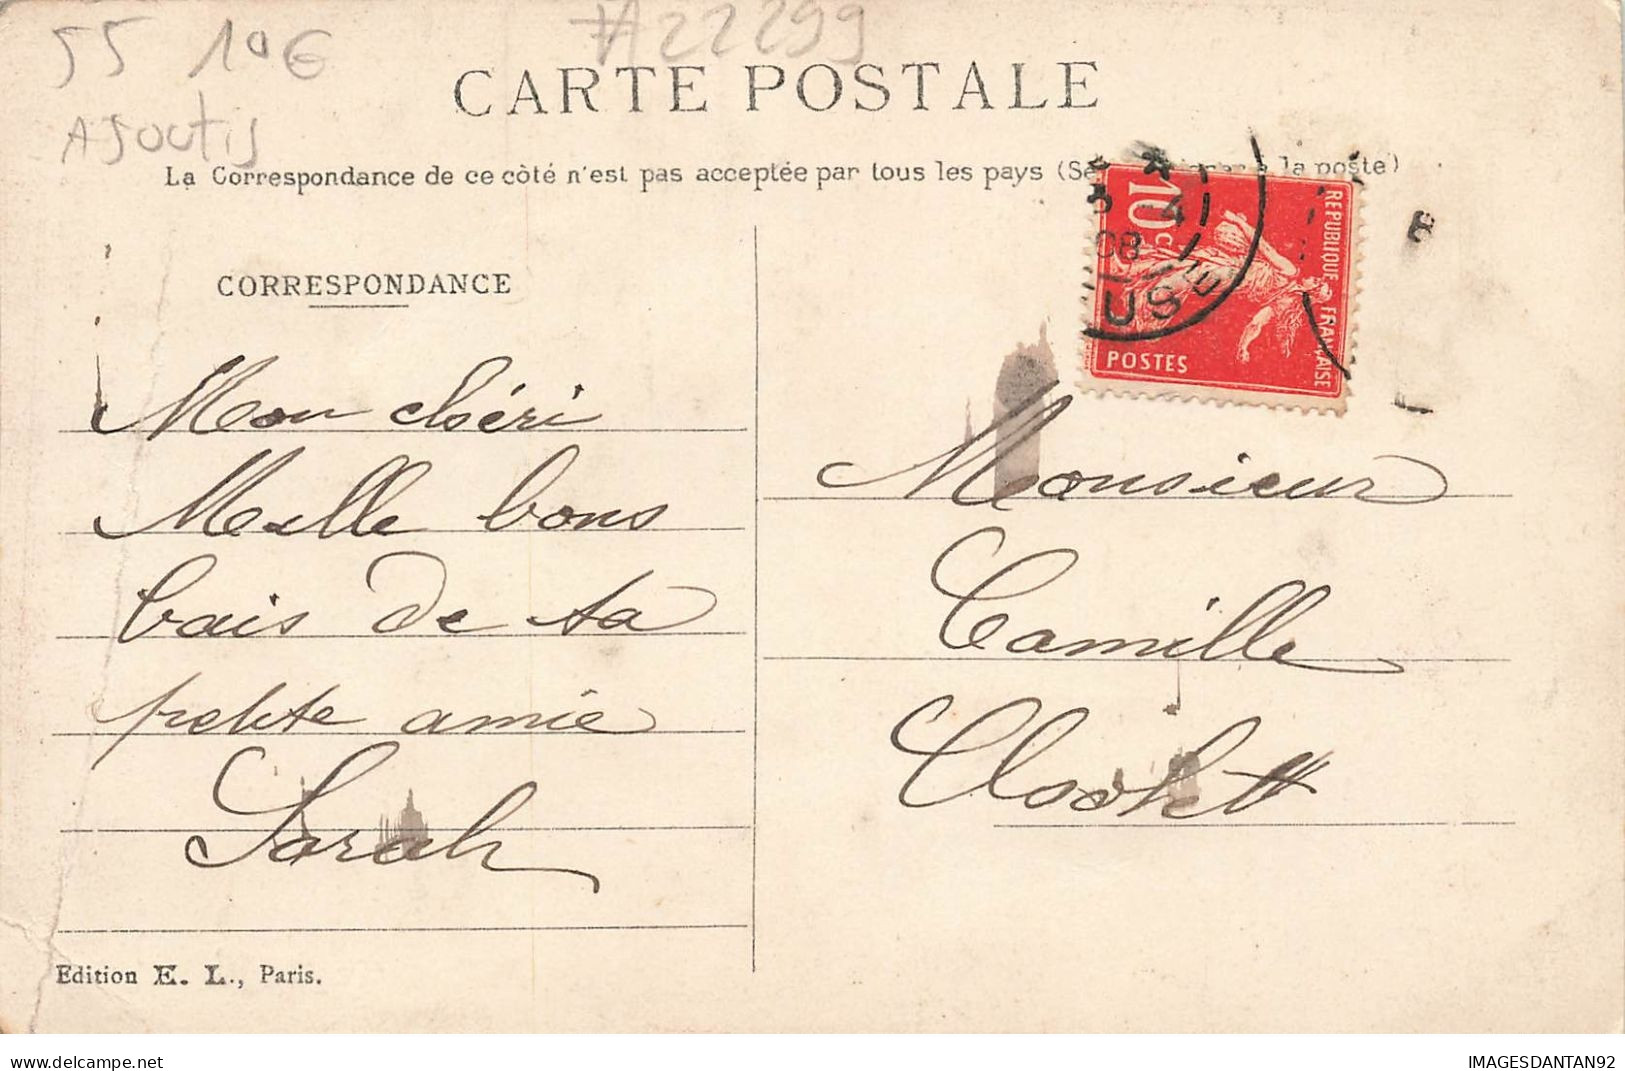 55 10€
#22299
AJOUTIS
CARTE POSTALE
La Correspondance de ce côté n'est pas acceptée par tous les pays (Se à la poste)
10c
REPUBLIQUE FRANÇAISE
POSTES
-4
08
USE
B
CORRESPONDANCE
Mon chéri
Mille bons
bais de ta
petite amie
Sarah
Monsieur
Camille
Edition E. L., Paris.
www.delcampe.net
IMAGESDANTAN92